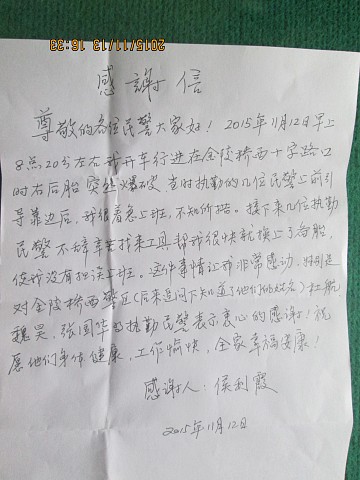 2015/11/13 16:33
感謝信
尊敬的各位民警大家好！2015年11月12日早上
8点20分左右我开车行进在金陵桥西十字路口
时右后胎突然爆破，当时执勤的几位民警上前引
导靠边后，我很着急上班，不知所措。接下来几位执勤
民警不辞辛苦找来工具帮我很快就换上了备胎，
使我没有担误上班。这件事情让我非常感动，特别是
对金陵桥西警区（后来追问下知道了他们的姓名）杜毅
魏昊，张国 执勤民警表示衷心的感谢！祝
愿他们身体健康，工作愉快，全家幸福安康！
感谢人：侯利霞
2015年11月12日